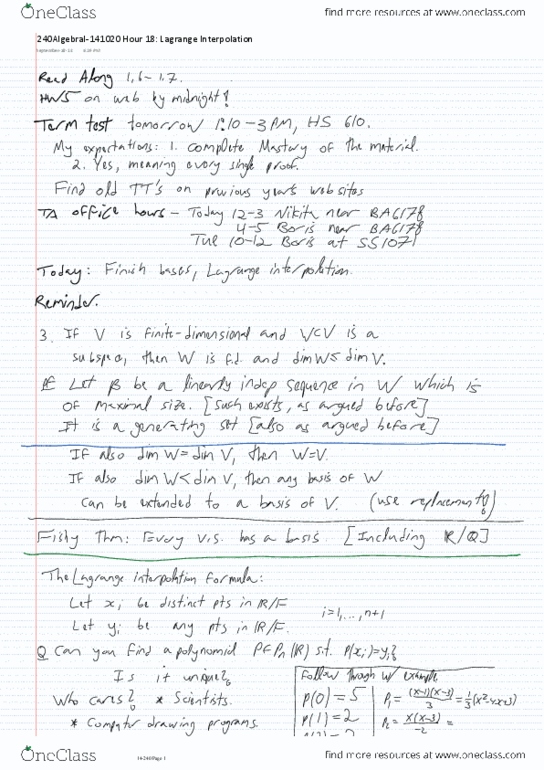 OneClass
find more resources at www.oneclass.com
240AlgebraI-141020 Hour 18: Lagrange Interpolation
Read Along 1.6-1.7.
HW5 on web by midnight!
Term test tomorrow 1:10-3PM, HS 610.
My expectations: 1. Complete Mastery of the material.
2. Yes, meaning every single proof.
Find old TT's on previous years web sites
TA office hours - Today 12-3 Nikita near BA6178
4-5 Boris near BA6178
Tue 10-12 Boris at SS1071
Today: Finish bases, Lagrange interpolation.
Reminder.
3. If V is finite-dimensional and W⊂V is a
subspace, then W is f.d. and dim W ≤ dim V.
PF Let β be a linearly indep sequence in W which is
of maximal size. [such exists, as argued before]
It is a generating set [also as argued before]
If also dim W = dim V, then W=V.
If also dim W < dim V, then any basis of W
can be extended to a basis of V. (use replacement)
Fishy Thm: Every v.s. has a basis. [Including R/Q]
The Lagrange interpolation Formula:
Let xi be distinct pts in R/F
i=1,...,n+1
Let yi be any pts in R/F.
Q Can you find a polynomial P∈Pn(R) s.t. P(xi)=yi?
Is it unique?
Who cares? * Scientists.
* Computer drawing programs.
Follow through w/ example
P(0)=5
P(1)=2
P1 = (x-1)(x-3)/3 = 1/3(x²-4x+3)
P2 = x(x-3)/-2 =
14-240 Page 1
OneClass
find more resources at www.oneclass.com